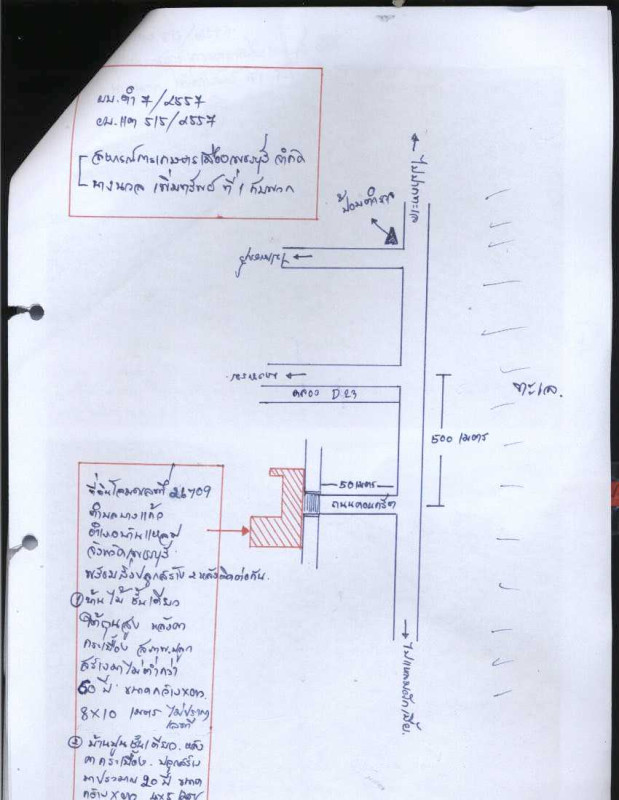 ผบ.ตำ 7/2557
ผบ.แดง 515/2557
สหกรณ์การเกษตรเมืองเพชรบุรี จำกัด
นางนวล เพิ่มทรัพย์ ที่ 1 กับพวก
ไปหาดทะเล
ป้อมตำรวจ
คลอง D.23
500 เมตร
ทะเล.
50 เมตร
ถนนคอนกรีต
ที่ดินโฉนดเลขที่ 26709
ตำบลบางแก้ว
อำเภอบ้านแหลม
จังหวัดเพชรบุรี
พร้อมสิ่งปลูกสร้าง 2 หลังติดต่อกัน.
① บ้านไม้ ชั้นเดียว
ใต้ถุนสูง หลังคา
กระเบื้อง สภาพปลูก
สร้างมาไม่ต่ำกว่า
50 ปี ขนาดกว้างxยาว
8x10 เมตร ไม่ปรากฏ
เลขที่
② บ้านปูนชั้นเดียว. หลัง
คากระเบื้อง. ปลูกสร้าง
มาประมาณ 20 ปี ขนาด
กว้างxยาว 4x5 เมตร